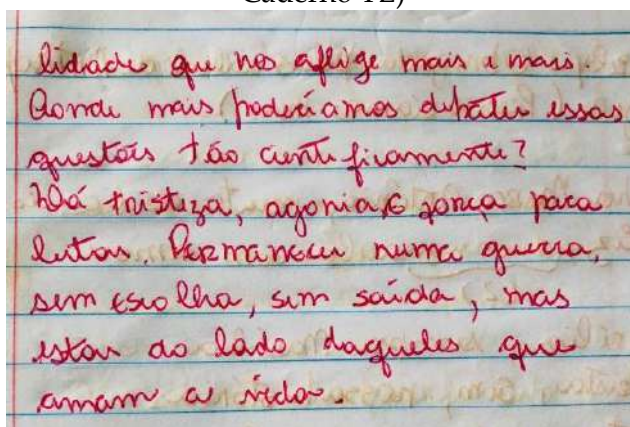 Caderno 12)
lidade que nos aflige mais e mais.
Aonde mais poderíamos debater essas
questões tão cientificamente?
Dá tristeza, agonia, e força para
lutar. Permanecer numa guerra,
sem escolha, sem saída, mas
estar do lado daqueles que
amam a vida.